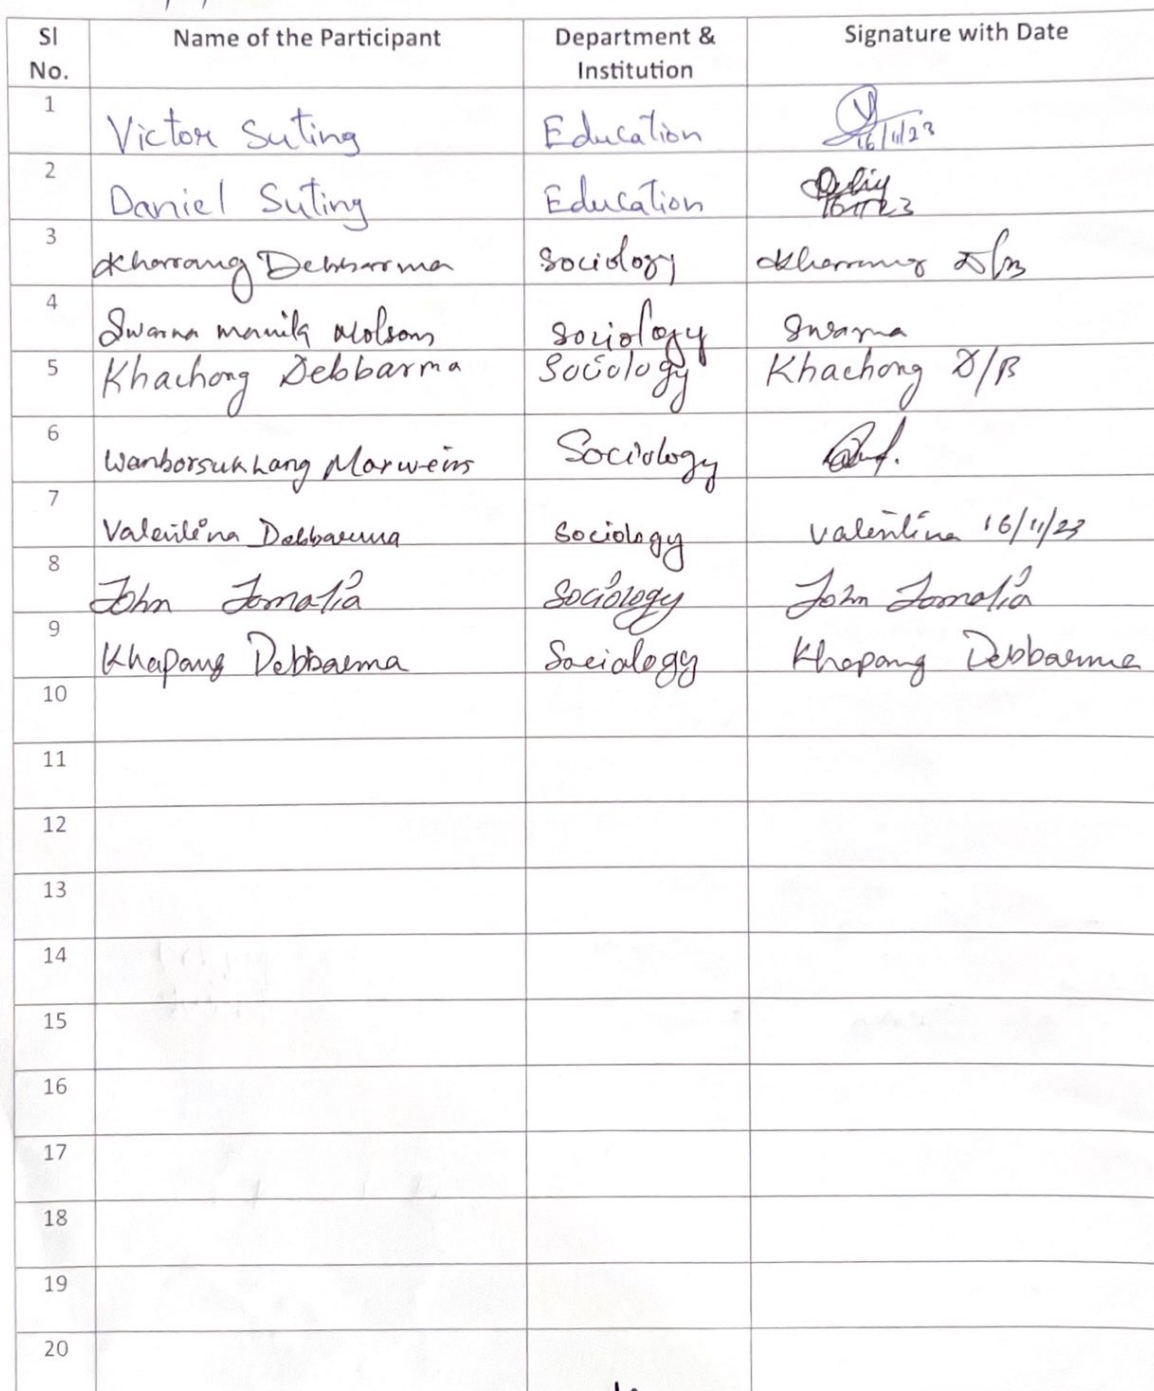 Sl No. Name of the Participant Department & Institution Signature with Date
1 Victor Suting Education 16/11/23
2 Daniel Suting Education
3 Kharrang Debbarma Sociology Kharrang D/B
4 Swarna manik Molsom Sociology Swarna
5 Khachong Debbarma Sociology Khachong D/B
6 Wanborsukhang Marwein Sociology
7 Valentina Debbarma Sociology Valentina 16/11/23
8 John Jamatia Sociology John Jamatia
9 Khapang Debbarma Sociology Khapang Debbarma
10
11
12
13
14
15
16
17
18
19
20